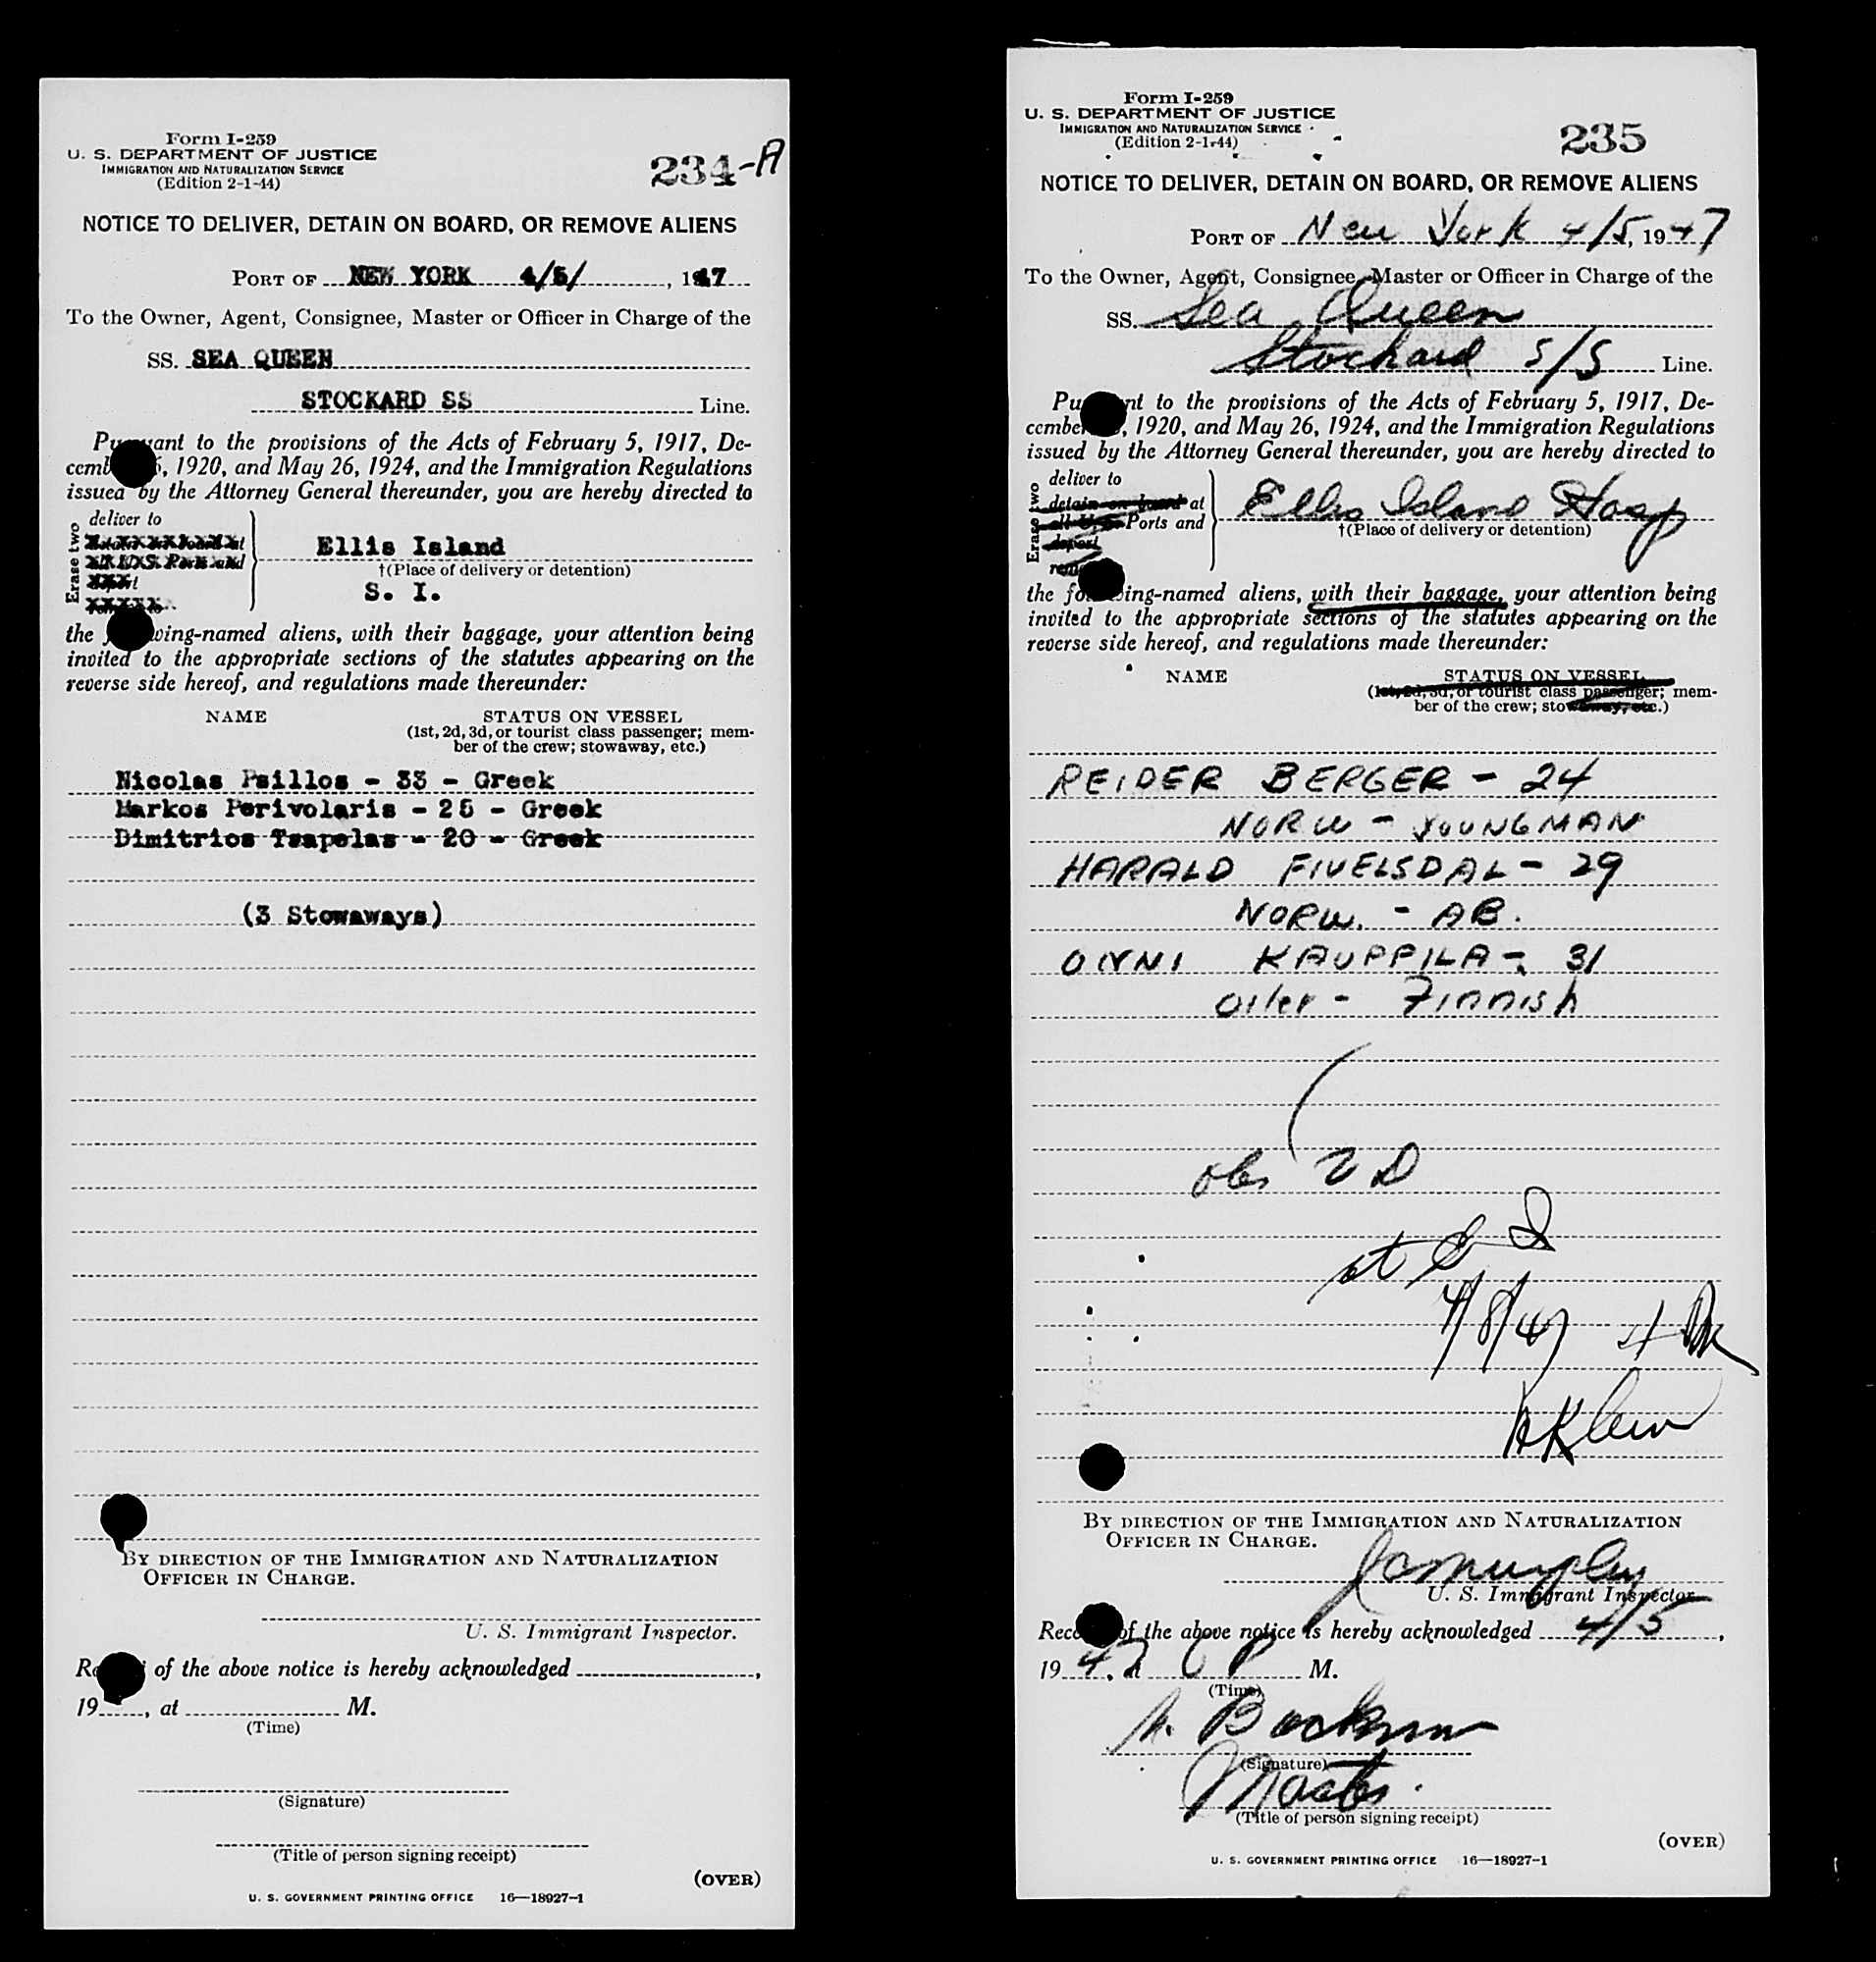 Form I-259
U. S. DEPARTMENT OF JUSTICE
IMMIGRATION AND NATURALIZATION SERVICE
(Edition 2-1-44)
234-A
NOTICE TO DELIVER, DETAIN ON BOARD, OR REMOVE ALIENS
PORT OF NEW YORK 4/5/, 1947
To the Owner, Agent, Consignee, Master or Officer in Charge of the
SS. SEA QUEEN
STOCKARD SS Line.
Pursuant to the provisions of the Acts of February 5, 1917, De-
cember, 1920, and May 26, 1924, and the Immigration Regulations
issued by the Attorney General thereunder, you are hereby directed to
Erase two
deliver to
at
U.S. Ports and
Ellis Island
†(Place of delivery or detention)
S. I.
the following-named aliens, with their baggage, your attention being
invited to the appropriate sections of the statutes appearing on the
reverse side hereof, and regulations made thereunder:
NAME STATUS ON VESSEL
(1st, 2d, 3d, or tourist class passenger; mem-
ber of the crew; stowaway, etc.)
Nicolas Psillos - 33 - Greek
Markos Perivolaris - 25 - Greek
Dimitrios Tsapelas - 20 - Greek
(3 Stowaways)
BY DIRECTION OF THE IMMIGRATION AND NATURALIZATION
OFFICER IN CHARGE.
U. S. Immigrant Inspector.
of the above notice is hereby acknowledged ,
19 , at M.
(Time)
(Signature)
(Title of person signing receipt)
(OVER)
U. S. GOVERNMENT PRINTING OFFICE 16—18927-1
Form I-259
U. S. DEPARTMENT OF JUSTICE
IMMIGRATION AND NATURALIZATION SERVICE
(Edition 2-1-44)
235
NOTICE TO DELIVER, DETAIN ON BOARD, OR REMOVE ALIENS
PORT OF New York 4/5, 1947
To the Owner, Agent, Consignee, Master or Officer in Charge of the
SS. Sea Queen
Stockard S/S Line.
Pursuant to the provisions of the Acts of February 5, 1917, De-
cember, 1920, and May 26, 1924, and the Immigration Regulations
issued by the Attorney General thereunder, you are hereby directed to
Erase two
deliver to
detain on board at
all U.S. Ports and
deport
Ellis Island Hosp
†(Place of delivery or detention)
the following-named aliens, with their baggage, your attention being
invited to the appropriate sections of the statutes appearing on the
reverse side hereof, and regulations made thereunder:
NAME STATUS ON VESSEL
(1st, 2d, 3d, or tourist class passenger; mem-
ber of the crew; stowaway, etc.)
REIDER BERGER - 24
NORW - YOUNGMAN
HARALD FIVELSDAL - 29
NORW. - AB.
KAUPPILA - 31
Oiler - Finnish
obs V D
at E I
4/8/47
Klein
BY DIRECTION OF THE IMMIGRATION AND NATURALIZATION
OFFICER IN CHARGE.
JC Murphy
U. S. Immigrant Inspector.
of the above notice is hereby acknowledged 4/5,
1947, at 6 P M.
(Time)
(Signature)
Master.
(Title of person signing receipt)
(OVER)
U. S. GOVERNMENT PRINTING OFFICE 16—18927-1